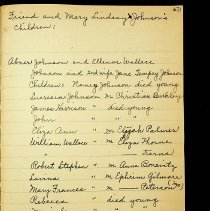 Friend and Mary Lindsay Johnson's
Children:
Abner Johnson and Ellenor Wallace
Johnson and 2nd wife Jane Tempey Johnson
Children's Nancy Johnson died young
Lucretia Johnson m Christian Barkley
James Harrison " died young
John " "
Eliza Ann " m Elijah Palmer
William Wallace " m Eliza Thorne
Robert Stephen " m Anna
Lavina " m Ephrim Gilmore
Mary Frances " m — Peterson
Rebecca " died young